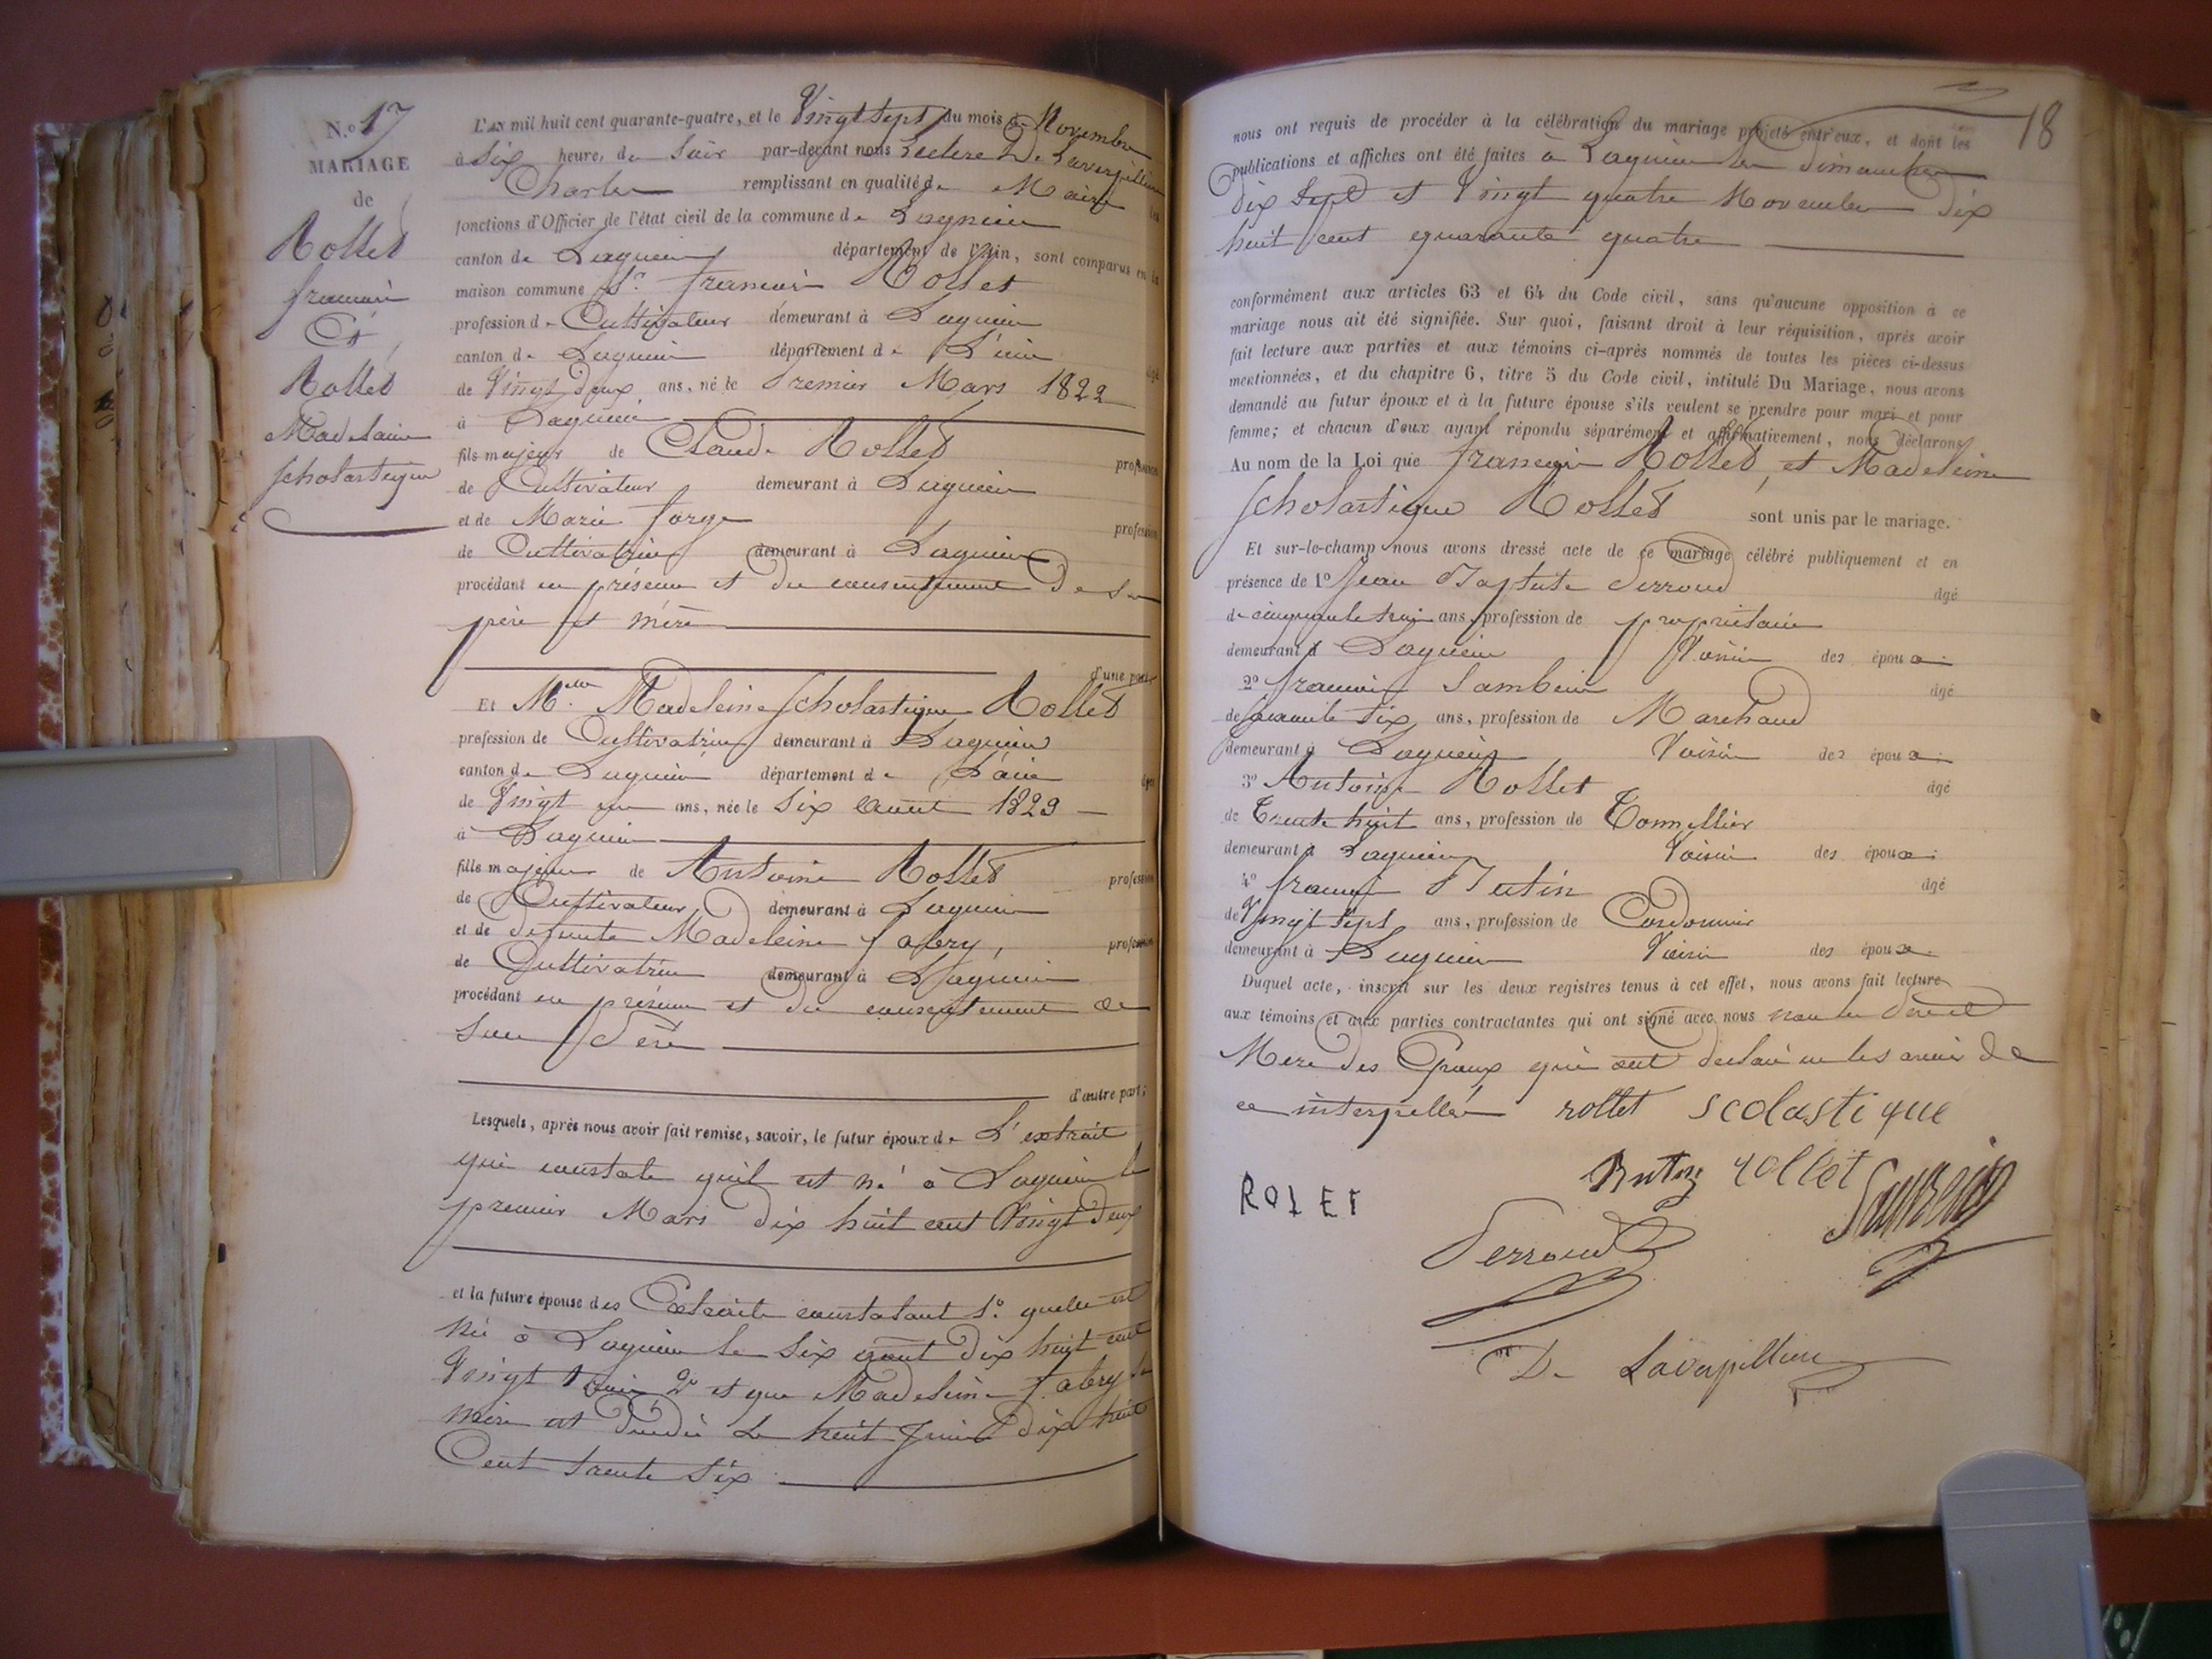 N.o 17
MARIAGE
de
Rollet
françois
Et
Rollet
Madelaine
Scholastique
L'AN mil huit cent quarante-quatre, et le Vingt Sept du mois de Novembre
à Six heure, du Soir par-devant nous De Lavarpillière
Charles remplissant en qualité de Maire les
fonctions d'Officier de l'état civil de la commune de Lagnieu
canton de Lagnieu département de l'Ain, sont comparus en la
maison commune Sr. françois Rollet
profession de Cultivateur demeurant à Lagnieu
canton de Lagnieu département de L'ain âgé
de Vingt Deux ans, né le Premier Mars 1822
à Lagnieu
fils majeur de Claude Rollet profession
de Cultivateur demeurant à Lagnieu
et de Marie forge profession
de Cultivatrice demeurant à Lagnieu
procédant en présence et du consentement De Se
père et mère
d'une part
Et Melle Madeleine Scholastique Rollet
profession de Cultivatrice demeurant à Lagnieu
canton de Lagnieu département de L'ain âgée
de Vingt un ans, née le Six Aout 1823
à Lagnieu
fille majeure de Antoine Rollet profession
de Cultivateur demeurant à Lagnieu
et de defunte Madeleine fabry, profession
de Cultivatrice demeurant à Lagnieu
procédant en présence et du consentement de
Son Père
d'autre part;
Lesquels, après nous avoir fait remise, savoir, le futur époux de L'extrait
qui constate qu'il est né à Lagnieu le
premier Mars dix huit cent Vingt Deux
et la future épouse des Extraits constatant 1.o quelle est
née à Lagnieu le Six aout Dix huit cent
Vingt trois 2o et que Madeleine fabry sa
mère est Décédée Le huit Juin Dix huit
Cent trente Six
18
nous ont requis de procéder à la célébration du mariage projeté entr'eux, et dont les
publications et affiches ont été faites à Lagnieu les dimanches
dix Sept et Vingt quatre Novembre Dix
huit cent quarante quatre
conformément aux articles 63 et 64 du Code civil, sans qu'aucune opposition à ce
mariage nous ait été signifiée. Sur quoi, faisant droit à leur réquisition, après avoir
fait lecture aux parties et aux témoins ci-après nommés de toutes les pièces ci-dessus
mentionnées, et du chapitre 6, titre 5 du Code civil, intitulé Du Mariage, nous avons
demandé au futur époux et à la future épouse s'ils veulent se prendre pour mari et pour
femme; et chacun d'eux ayant répondu séparément et affirmativement, nous déclarons
Au nom de la Loi que françois Rollet, et Madeleine
Scholastique Rollet sont unis par le mariage.
Et sur-le-champ nous avons dressé acte de ce mariage célébré publiquement et en
présence de 1o Jean Baptiste Perroud âgé
de cinquante trois ans, profession de propriétaire
demeurant à Lagnieu Voisin des époux.
2o françois Sambein âgé
de Six ans, profession de Marchand
demeurant à Lagnieu Voisin des époux.
3o Antoine Rollet âgé
de Trente huit ans, profession de Tonnellier
demeurant à Lagnieu Voisin des époux.
4o françois Butin âgé
de Vingt Sept ans, profession de Cordonnier
demeurant à Lagnieu Voisin des époux.
Duquel acte, inscrit sur les deux registres tenus à cet effet, nous avons fait lecture
aux témoins et aux parties contractantes qui ont signé avec nous non les Père et
Mere des Epoux qui ont declaré ne les avoir de
ce interpellés rollet scolastique
ROLET
rollet
Perroud
De Lavarpilliere